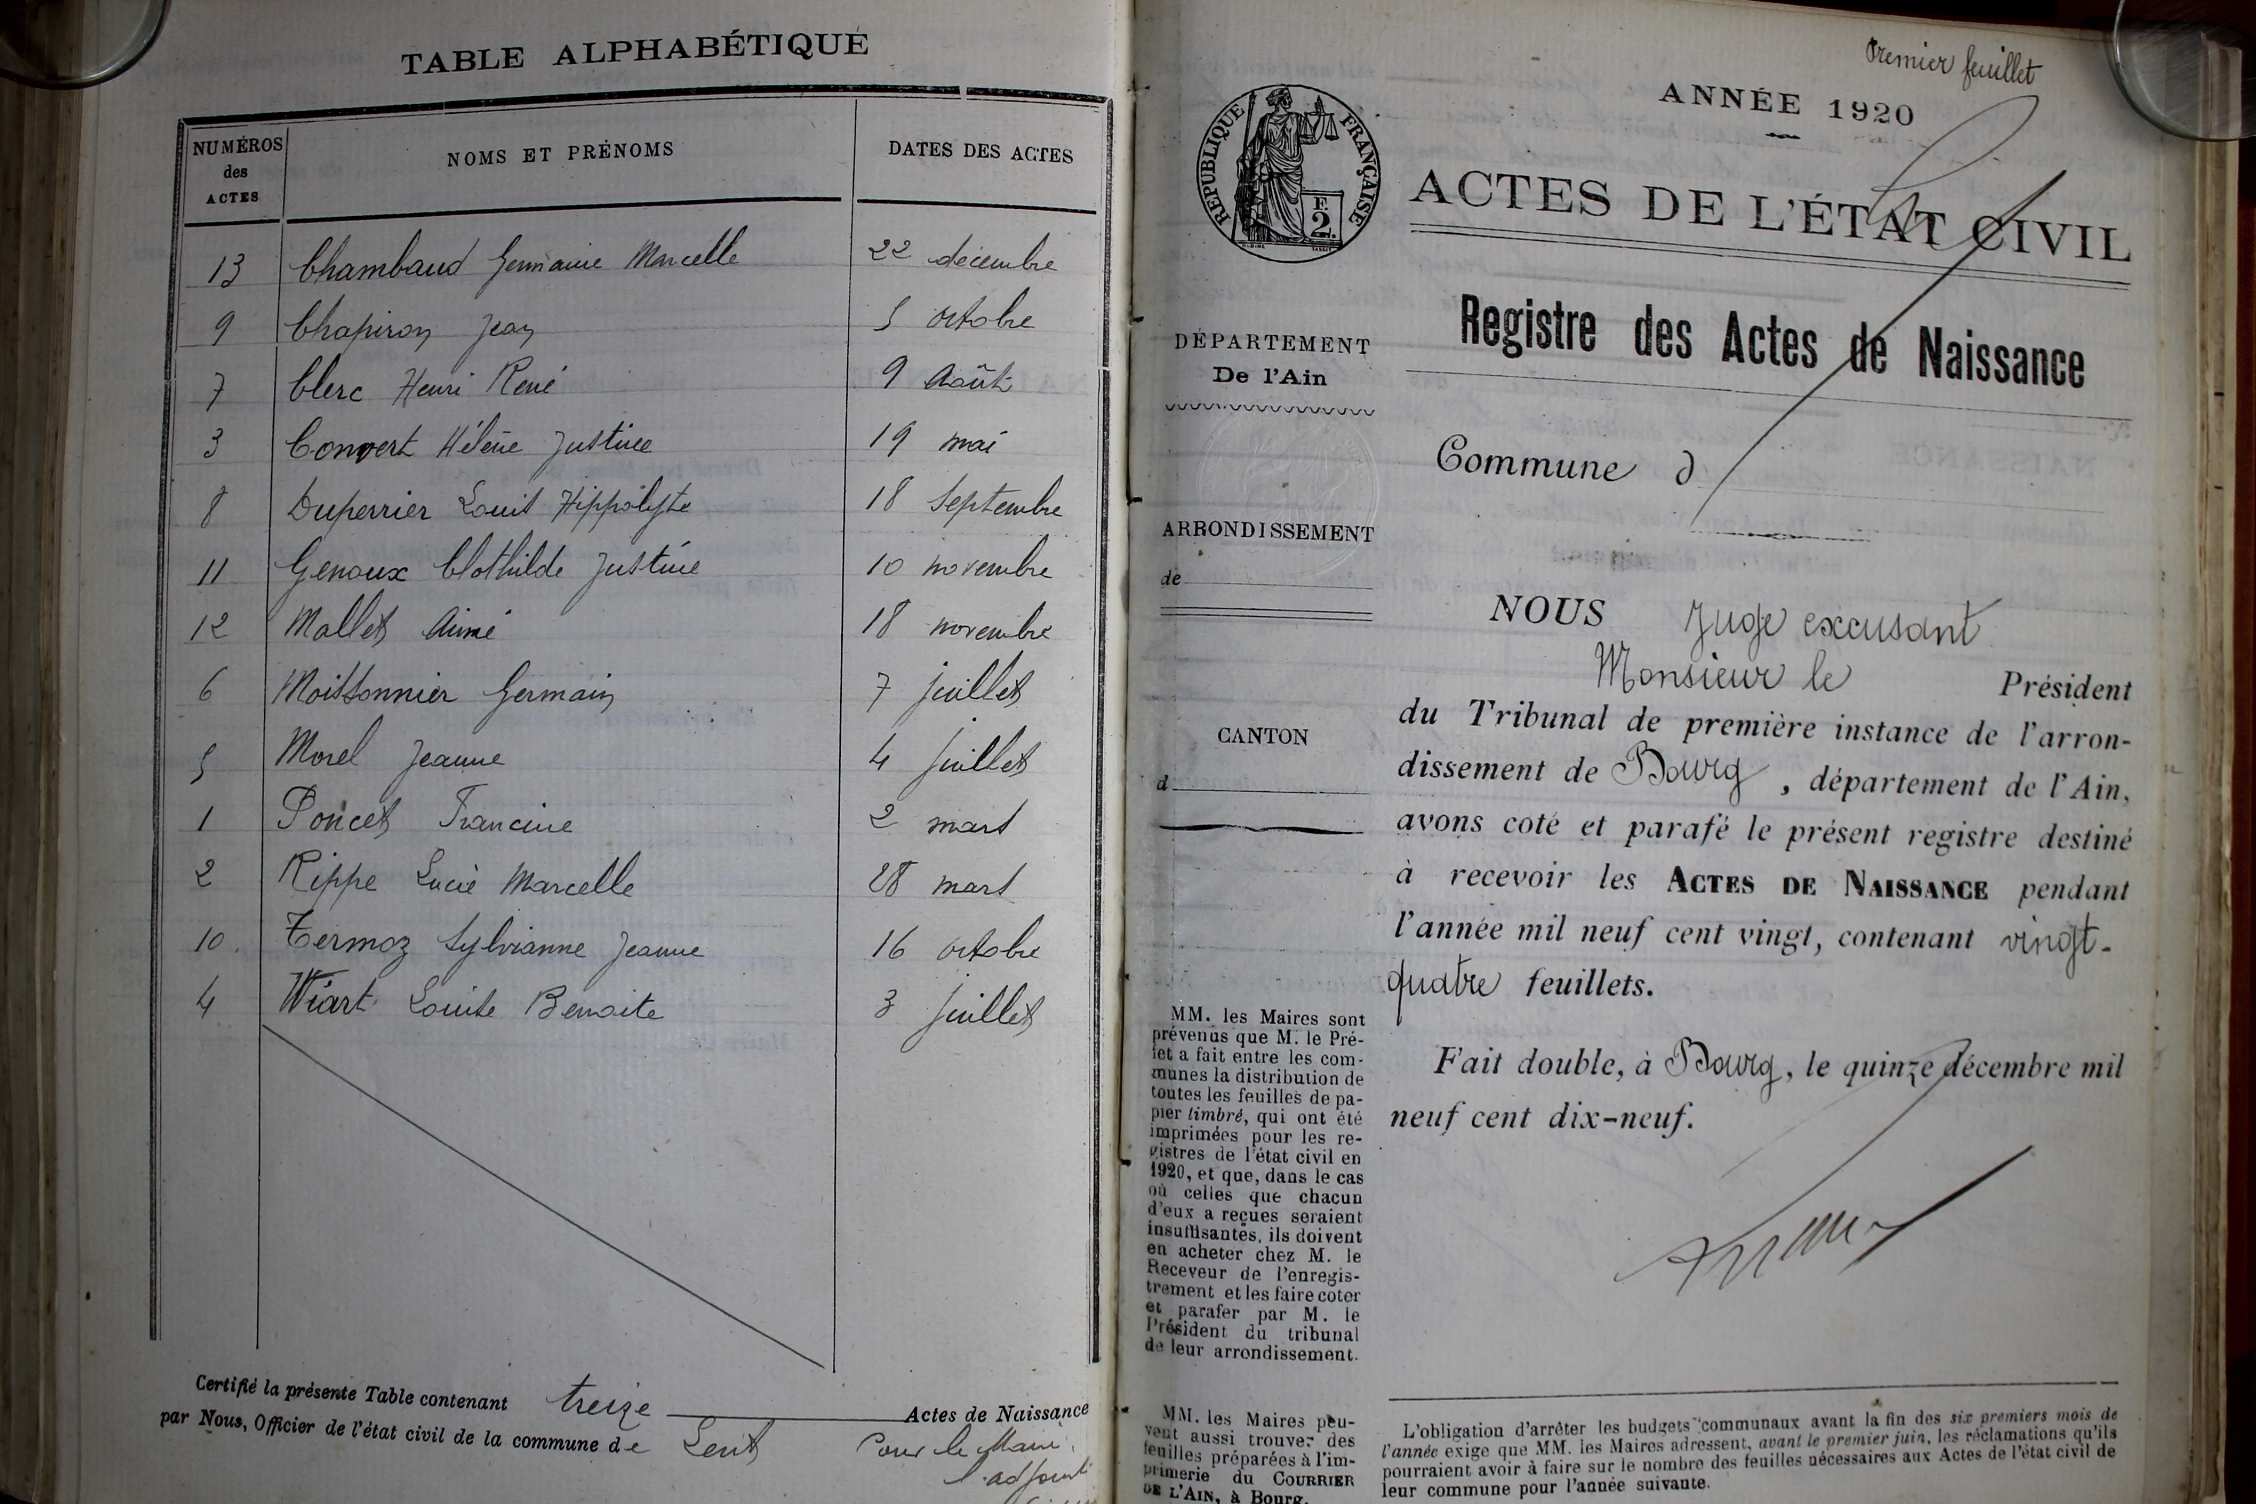 TABLE ALPHABÉTIQUE
NUMÉROS des ACTES
NOMS ET PRÉNOMS
DATES DES ACTES
13 Chambaud Germaine Marcelle 22 décembre
9 Chapiron Jean 5 octobre
7 Clerc Henri René 9 Août
3 Convert Hélène Justine 19 mai
8 Duperrier Louis Hippolyte 18 Septembre
11 Genoux Clothilde Justine 10 novembre
12 Mallet Aimé 18 novembre
6 Moissonnier Germain 7 juillet
5 Morel Jeanne 4 juillet
1 Poncet Francine 2 mars
2 Rippe Lucie Marcelle 28 mars
10 Termoz Sylvianne Jeanne 16 octobre
4 Wiart Louise Benoite 3 juillet
Certifié la présente Table contenant treize Actes de Naissance
par Nous, Officier de l'état civil de la commune de Lent
Pour le Maire,
l'adjoint
Premier feuillet
ANNÉE 1920
RÉPUBLIQUE FRANÇAISE
F.
2.
ACTES DE L'ÉTAT CIVIL
Registre des Actes de Naissance
DÉPARTEMENT
De l'Ain
Commune d
ARRONDISSEMENT
de
CANTON
d
NOUS Juge excusant
Monsieur le Président
du Tribunal de première instance de l'arron-
dissement de Bourg, département de l'Ain,
avons coté et parafé le présent registre destiné
à recevoir les ACTES DE NAISSANCE pendant
l'année mil neuf cent vingt, contenant vingt-
quatre feuillets.
Fait double, à Bourg, le quinze décembre mil
neuf cent dix-neuf.
MM. les Maires sont
prévenus que M. le Pré-
fet a fait entre les com-
munes la distribution de
toutes les feuilles de pa-
pier timbré, qui ont été
imprimées pour les re-
gistres de l'état civil en
1920, et que, dans le cas
où celles que chacun
d'eux a reçues seraient
insuffisantes, ils doivent
en acheter chez M. le
Receveur de l'enregis-
trement et les faire coter
et parafer par M. le
Président du tribunal
de leur arrondissement.
MM. les Maires peu-
vent aussi trouver des
feuilles préparées à l'im-
primerie du COURRIER
DE L'AIN, à Bourg.
L'obligation d'arrêter les budgets communaux avant la fin des six premiers mois de
l'année exige que MM. les Maires adressent, avant le premier juin, les réclamations qu'ils
pourraient avoir à faire sur le nombre des feuilles nécessaires aux Actes de l'état civil de
leur commune pour l'année suivante.